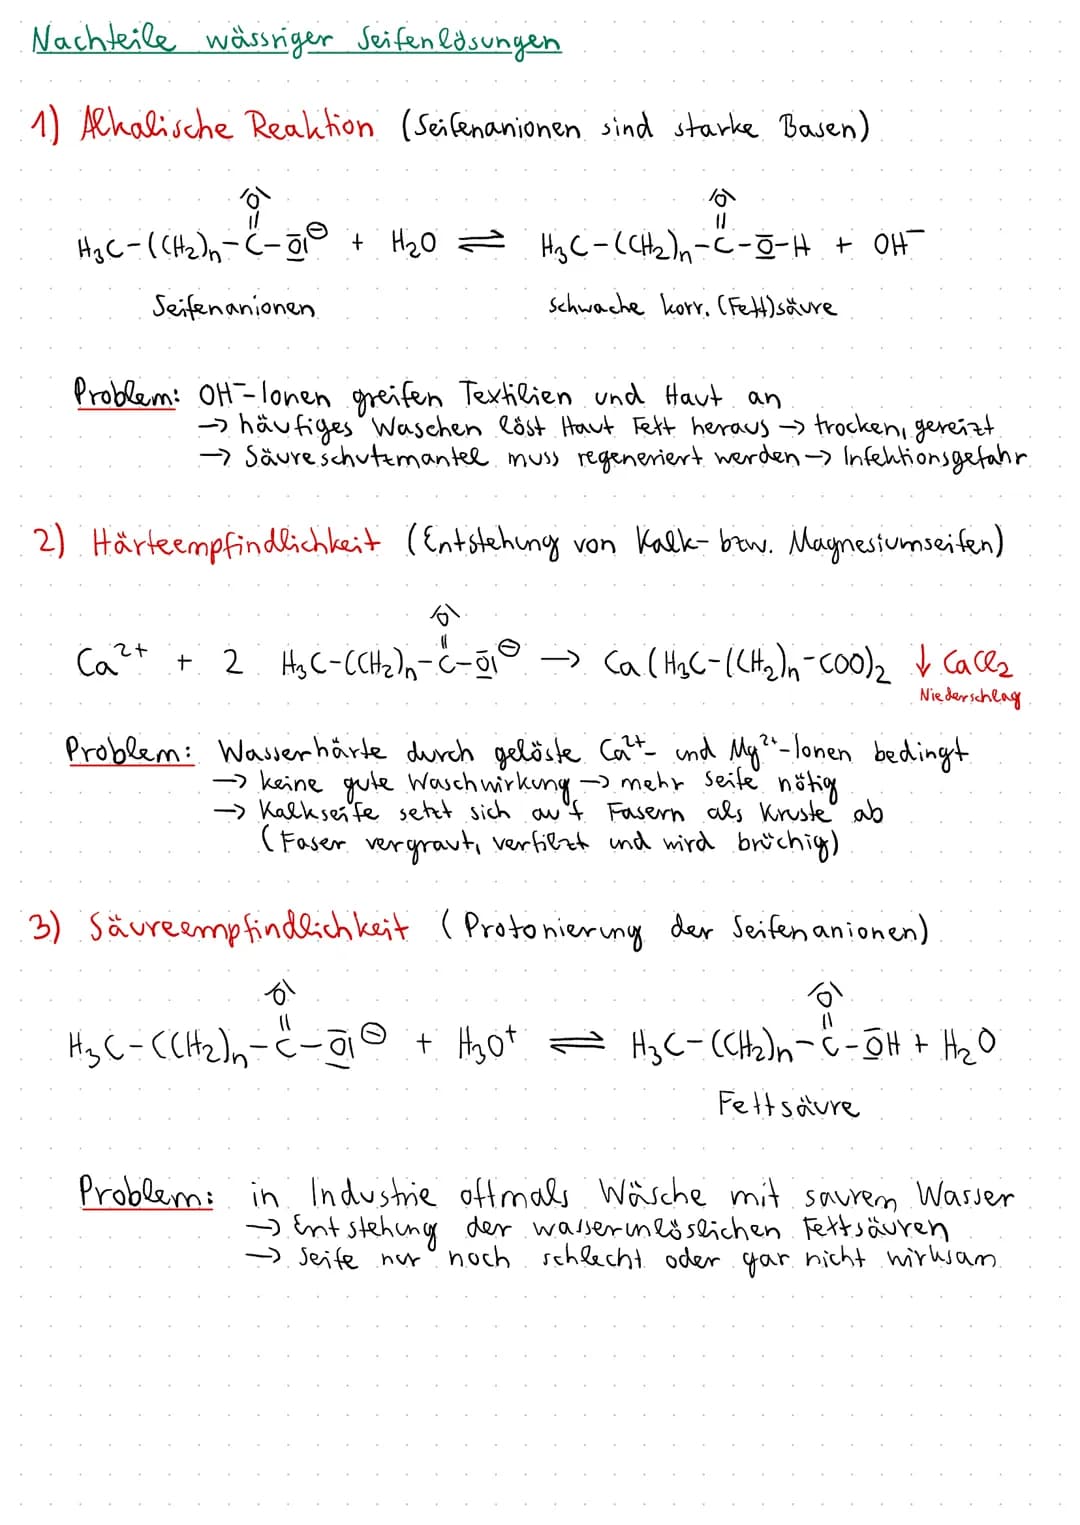 Nachteile wässriger Seifenlösungen
1) Alkalische Reaktion (Seifenanionen sind starke Basen)
H₃C-(CH₂)ₙ-C(=O)-O⊖ + H₂O ⇌ H₃C-(CH₂)ₙ-C(=O)-O-H + OH⁻
Seifenanionen schwache korr. (Fett)säure
Problem: OH⁻-Ionen greifen Textilien und Haut an
→ häufiges Waschen löst Haut Fett heraus → trocken, gereizt
→ Säureschutzmantel muss regeneriert werden → Infektionsgefahr
2) Härteempfindlichkeit (Entstehung von Kalk- bzw. Magnesiumseifen)
Ca²⁺ + 2 H₃C-(CH₂)ₙ-C(=O)-O⊖ → Ca(H₃C-(CH₂)ₙ-COO)₂ ↓ CaCl₂
Niederschlag
Problem: Wasserhärte durch gelöste Ca²⁺- und Mg²⁺-Ionen bedingt
→ keine gute Waschwirkung → mehr Seife nötig
→ Kalkseife setzt sich auf Fasern als Kruste ab
(Faser vergraut, verfilzt und wird brüchig)
3) Säureempfindlichkeit (Protonierung der Seifenanionen)
H₃C-(CH₂)ₙ-C(=O)-O⊖ + H₃O⁺ ⇌ H₃C-(CH₂)ₙ-C(=O)-OH + H₂O
Fettsäure
Problem: in Industrie oftmals Wäsche mit saurem Wasser
→ Entstehung der wasserunlöslichen Fettsäuren
→ Seife nur noch schlecht oder gar nicht wirksam